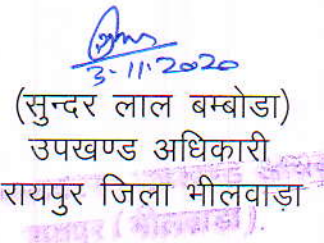 3-11-2020
(सुन्दर लाल बम्बोडा)
उपखण्ड अधिकारी
रायपुर जिला भीलवाडा